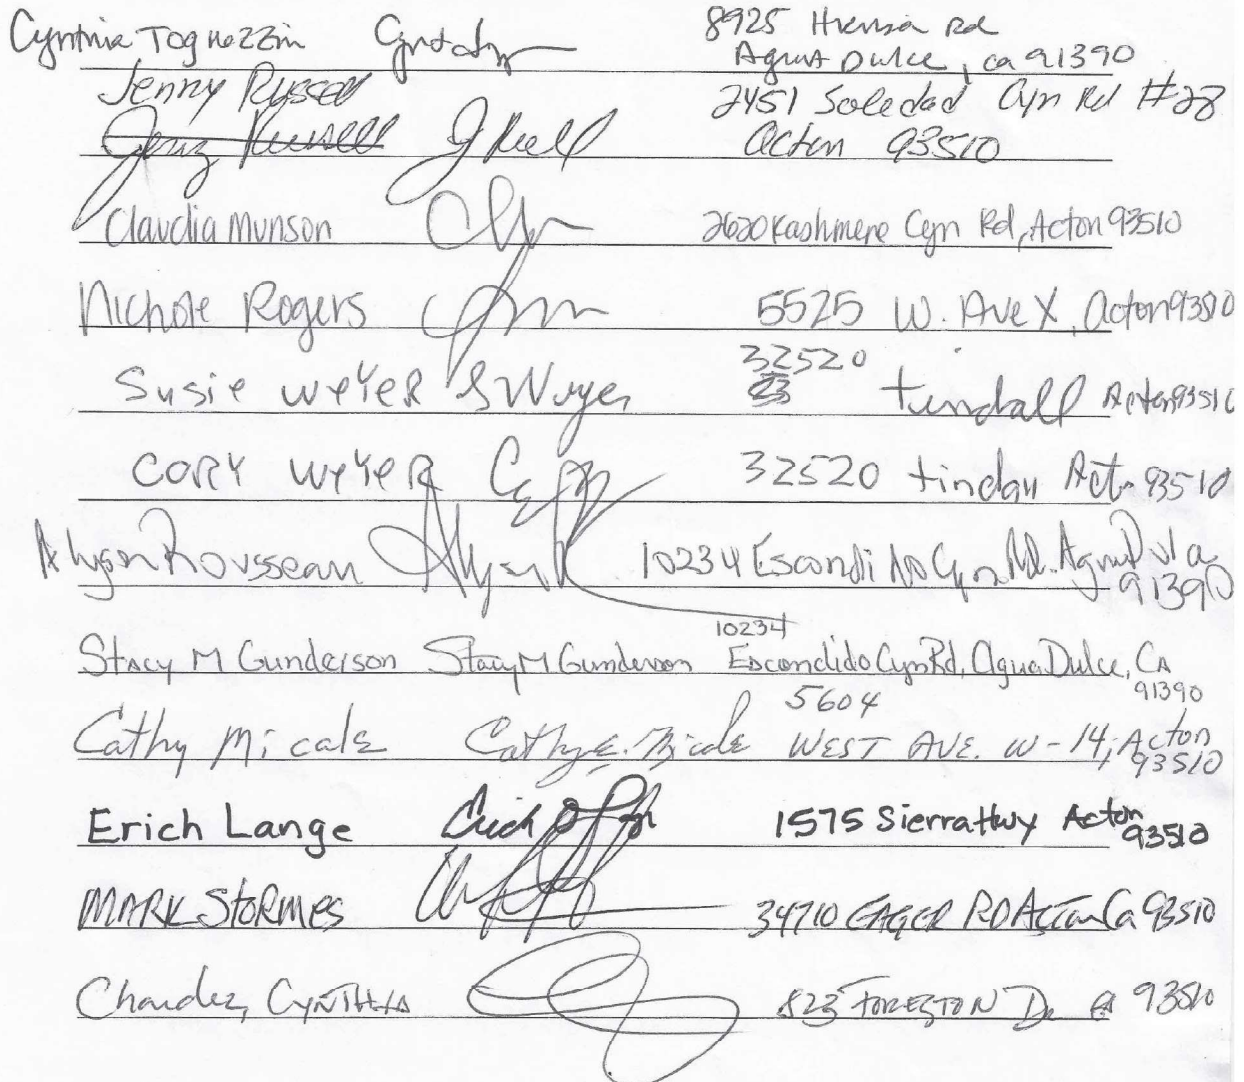 Cynthia Tognazzini 8925 Hierba Rd
Agua Dulce, ca 91390
Jenny Russell 2451 Soledad Cyn Rd #28
Jenny Russell J Rusell Acton 93510
Claudia Munson 2620 Kashmere Cyn Rd, Acton 93510
Nichole Rogers 5525 W. Ave X, Acton 93510
Susie Weyer S Weyer 32520 tindall Acton 93510
Cory Weyer 32520 tindall Acton 93510
Alyson Rousseau Alyson R 10234 Escondido Cyn Rd. Agua Dulce
91390
10234
Stacy M Gunderson Stacy M Gunderson Escondido Cyn Rd, Agua Dulce, CA
91390
5604
Cathy Micale Cathy E. Micale WEST AVE. W-14, Acton
93510
Erich Lange Erich 1575 Sierra Hwy Acton
93510
MARK STORMES 34710 EAGER RD Acton Ca 93510
CYNTHIA 823 FORESTON Dr 93510